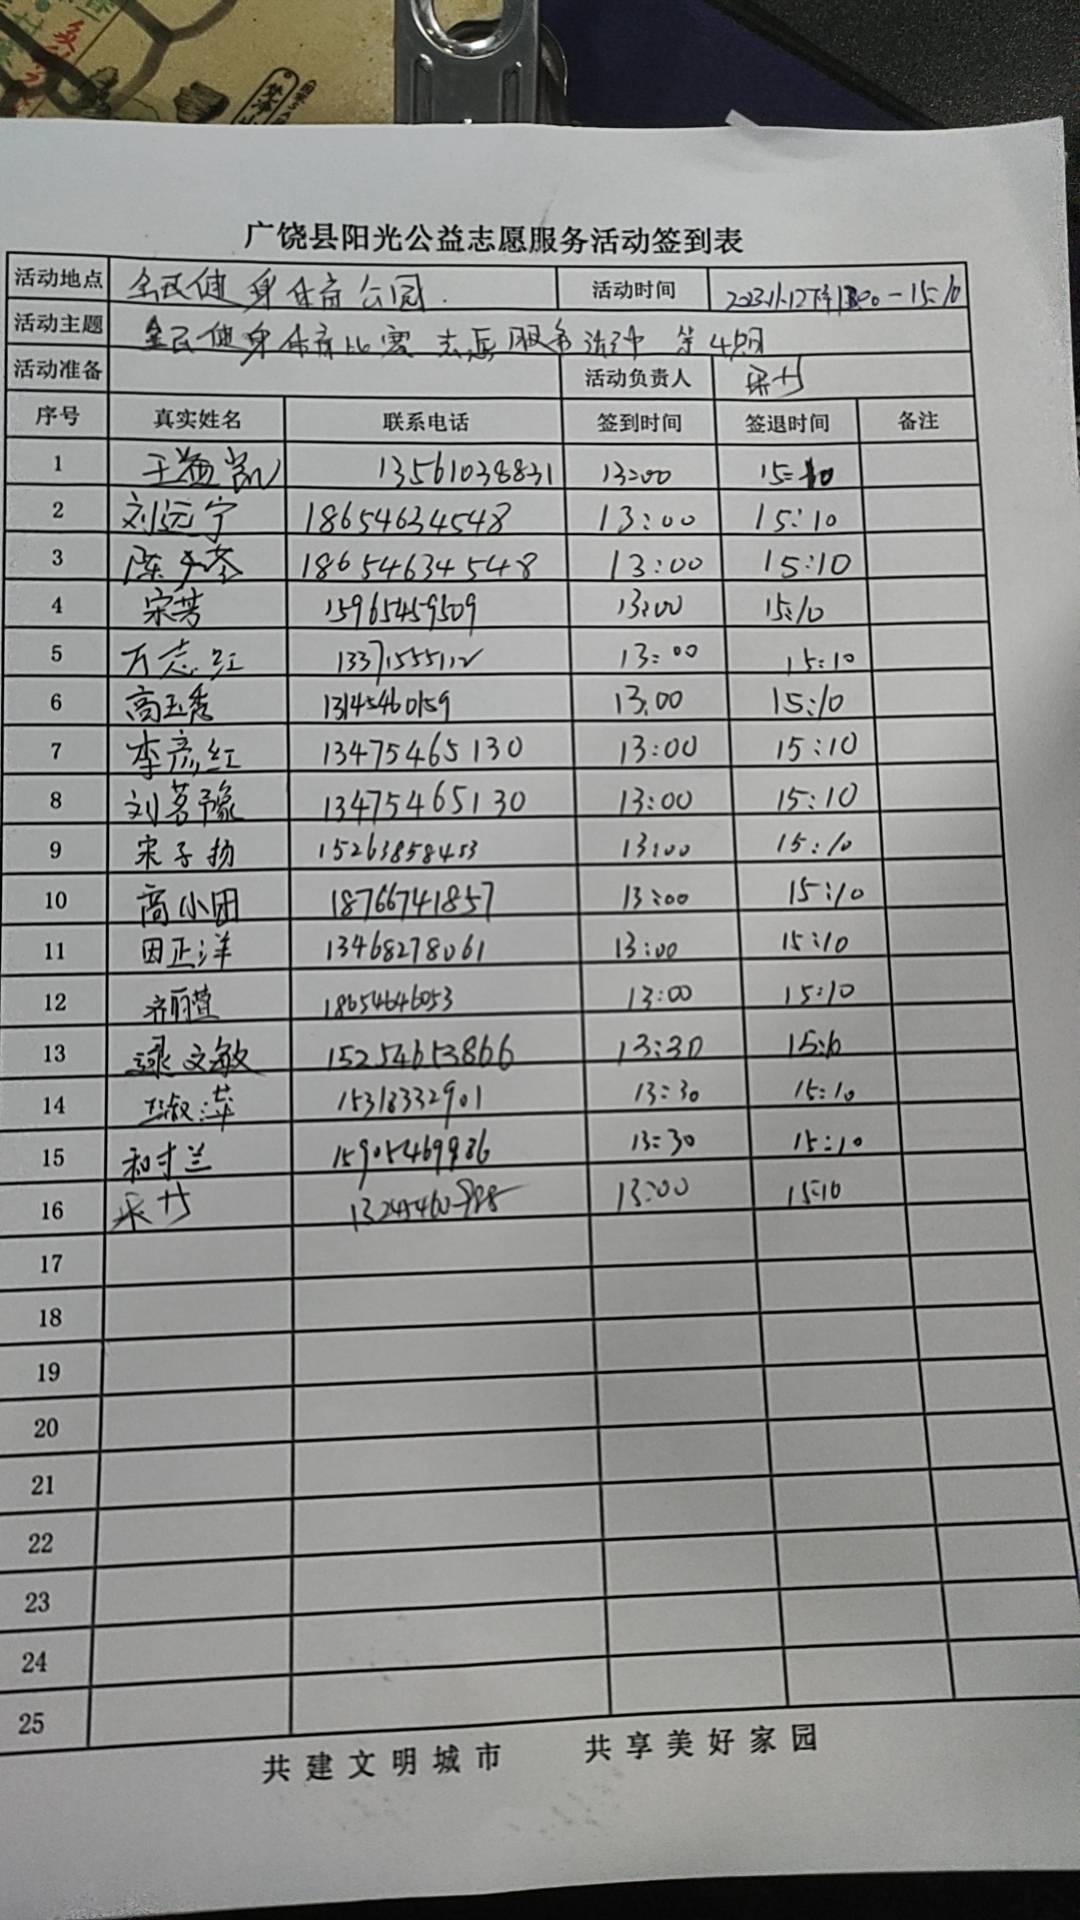 广饶县阳光公益志愿服务活动签到表
活动地点 全民健身体育公园. 活动时间 2023.11.12下午13:00-15:10
活动主题 全民健身体育比赛志愿服务活动 第4期
活动准备 活动负责人
序号 真实姓名 联系电话 签到时间 签退时间 备注
1 王益凯 13561038831 13:00 15:10
2 刘远宁 18654634548 13:00 15:10
3 陈 18654634548 13:00 15:10
4 宋芳 15965459509 13:00 15:10
5 万志红 13371555112 13:00 15:10
6 高玉秀 13145460159 13:00 15:10
7 李彦红 13475465130 13:00 15:10
8 刘茗豫 13475465130 13:00 15:10
9 宋子扬 15263858453 13:00 15:10
10 高小团 18766741857 13:00 15:10
11 田正洋 13468278061 13:00 15:10
12 18654646053 13:00 15:10
13 文敏 15254653866 13:30 15:10
14 15318332901 13:30 15:10
15 和才兰 15905469986 13:30 15:10
16 13:00 15:10
17
18
19
20
21
22
23
24
25
共建文明城市 共享美好家园